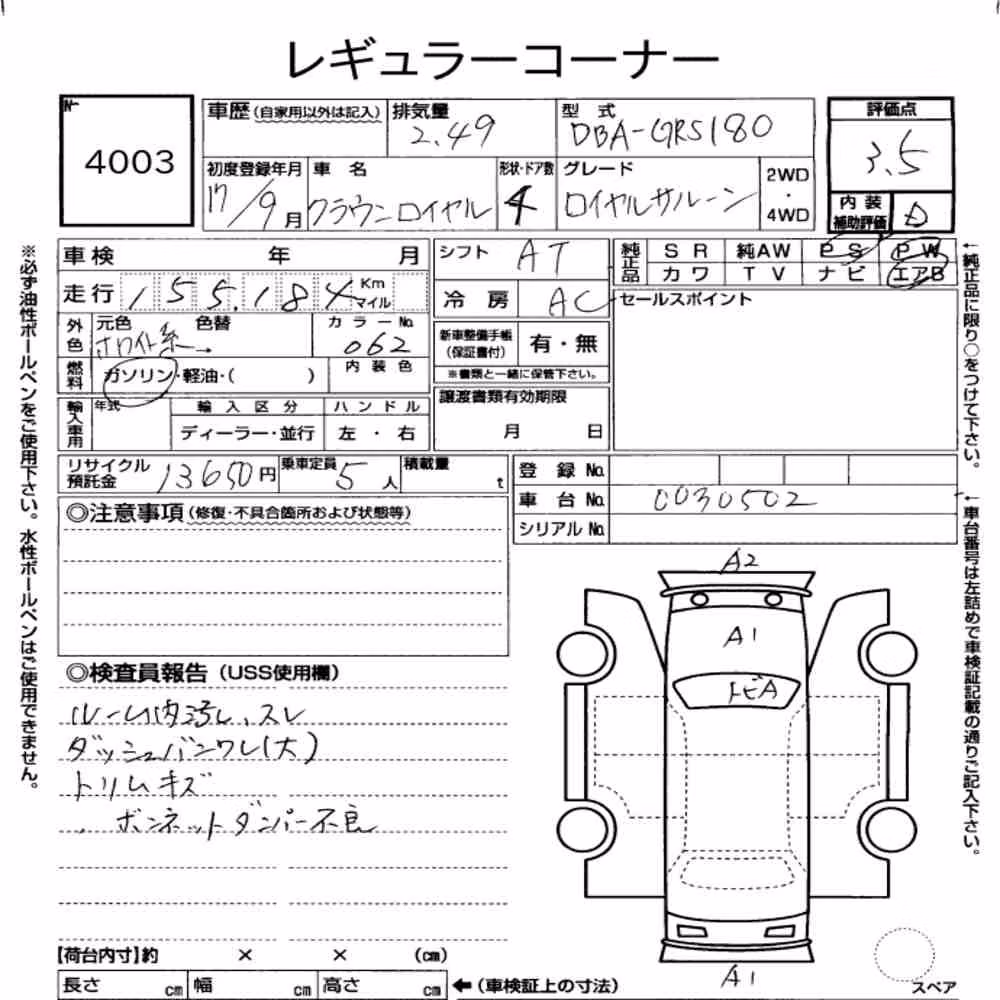 レギュラーコーナー
4003
車歴(自家用以外は記入) 排気量 型 式 評価点
2.49 DBA-GRS180 3.5
初度登録年月 車 名 形状・ドア数 グレード 2WD・4WD
17/9月 クラウンロイヤル 4 ロイヤルサルーン
内装補助評価 D
車検 年 月 シフト AT
純正品 SR 純AW PS PW
カワ TV ナビ エアB
走行 155,184 Km マイル 冷房 AC
セールスポイント
外色 元色 色替 カラーNo.
ホワイト系 062
新車整備手帳(保証書付) 有・無
※書類と一緒に保管下さい。
燃料 ガソリン・軽油・( ) 内装色
譲渡書類有効期限
月 日
輸入車用 年式 輸入区分 ハンドル
ディーラー・並行 左・右
リサイクル預託金 13650円 乗車定員 5人 積載量 t
登録No.
車台No. 0030502
シリアルNo.
◎注意事項(修復・不具合箇所および状態等)
A2
A1
トビA
A1
◎検査員報告(USS使用欄)
ルーム内汚れ、スレ
ダッシュバンワレ(大)
トリムキズ
ボンネットダンパー不良
【荷台内寸】約 × × (cm)
長さ cm 幅 cm 高さ cm ←(車検証上の寸法)
スペア
※必ず油性ボールペンをご使用下さい。水性ボールペンはご使用できません。
←純正品に限り○をつけて下さい。
←車台番号は左詰めで車検証記載の通りご記入下さい。